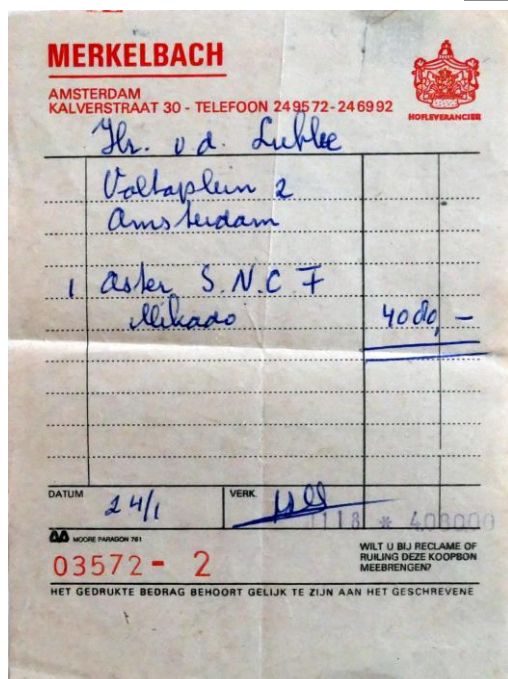 MERKELBACH
AMSTERDAM
KALVERSTRAAT 30 - TELEFOON 249572-246992
HOFLEVERANCIER
Hr. v.d. Lubbe
Voltaplein 2
Amsterdam
1 Aster S.N.C.F
Mikado 4080,-
DATUM 24/1 VERK.
0118 * 408000
MOORE PARAGON 761
03572- 2
WILT U BIJ RECLAME OF
RUILING DEZE KOOPBON
MEEBRENGEN?
HET GEDRUKTE BEDRAG BEHOORT GELIJK TE ZIJN AAN HET GESCHREVENE